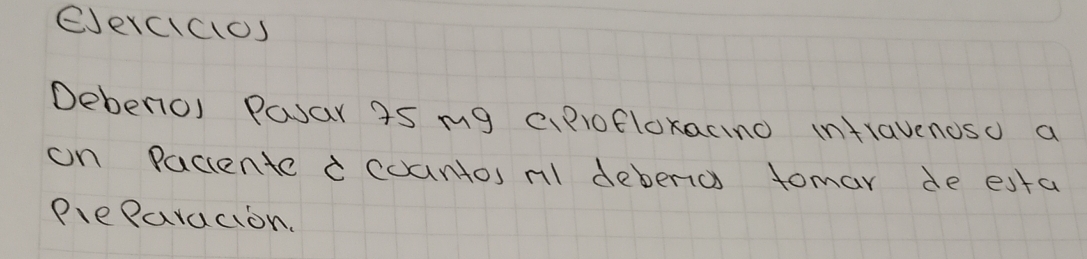 Ejercicios
Debemos Pasar 75 mg ciprofloxacino intravenoso a
un Paciente ¿ cuantos ml debemos tomar de esta
Preparación.